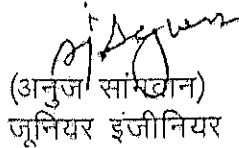 (अनुज सांगवान)
जूनियर इंजीनियर